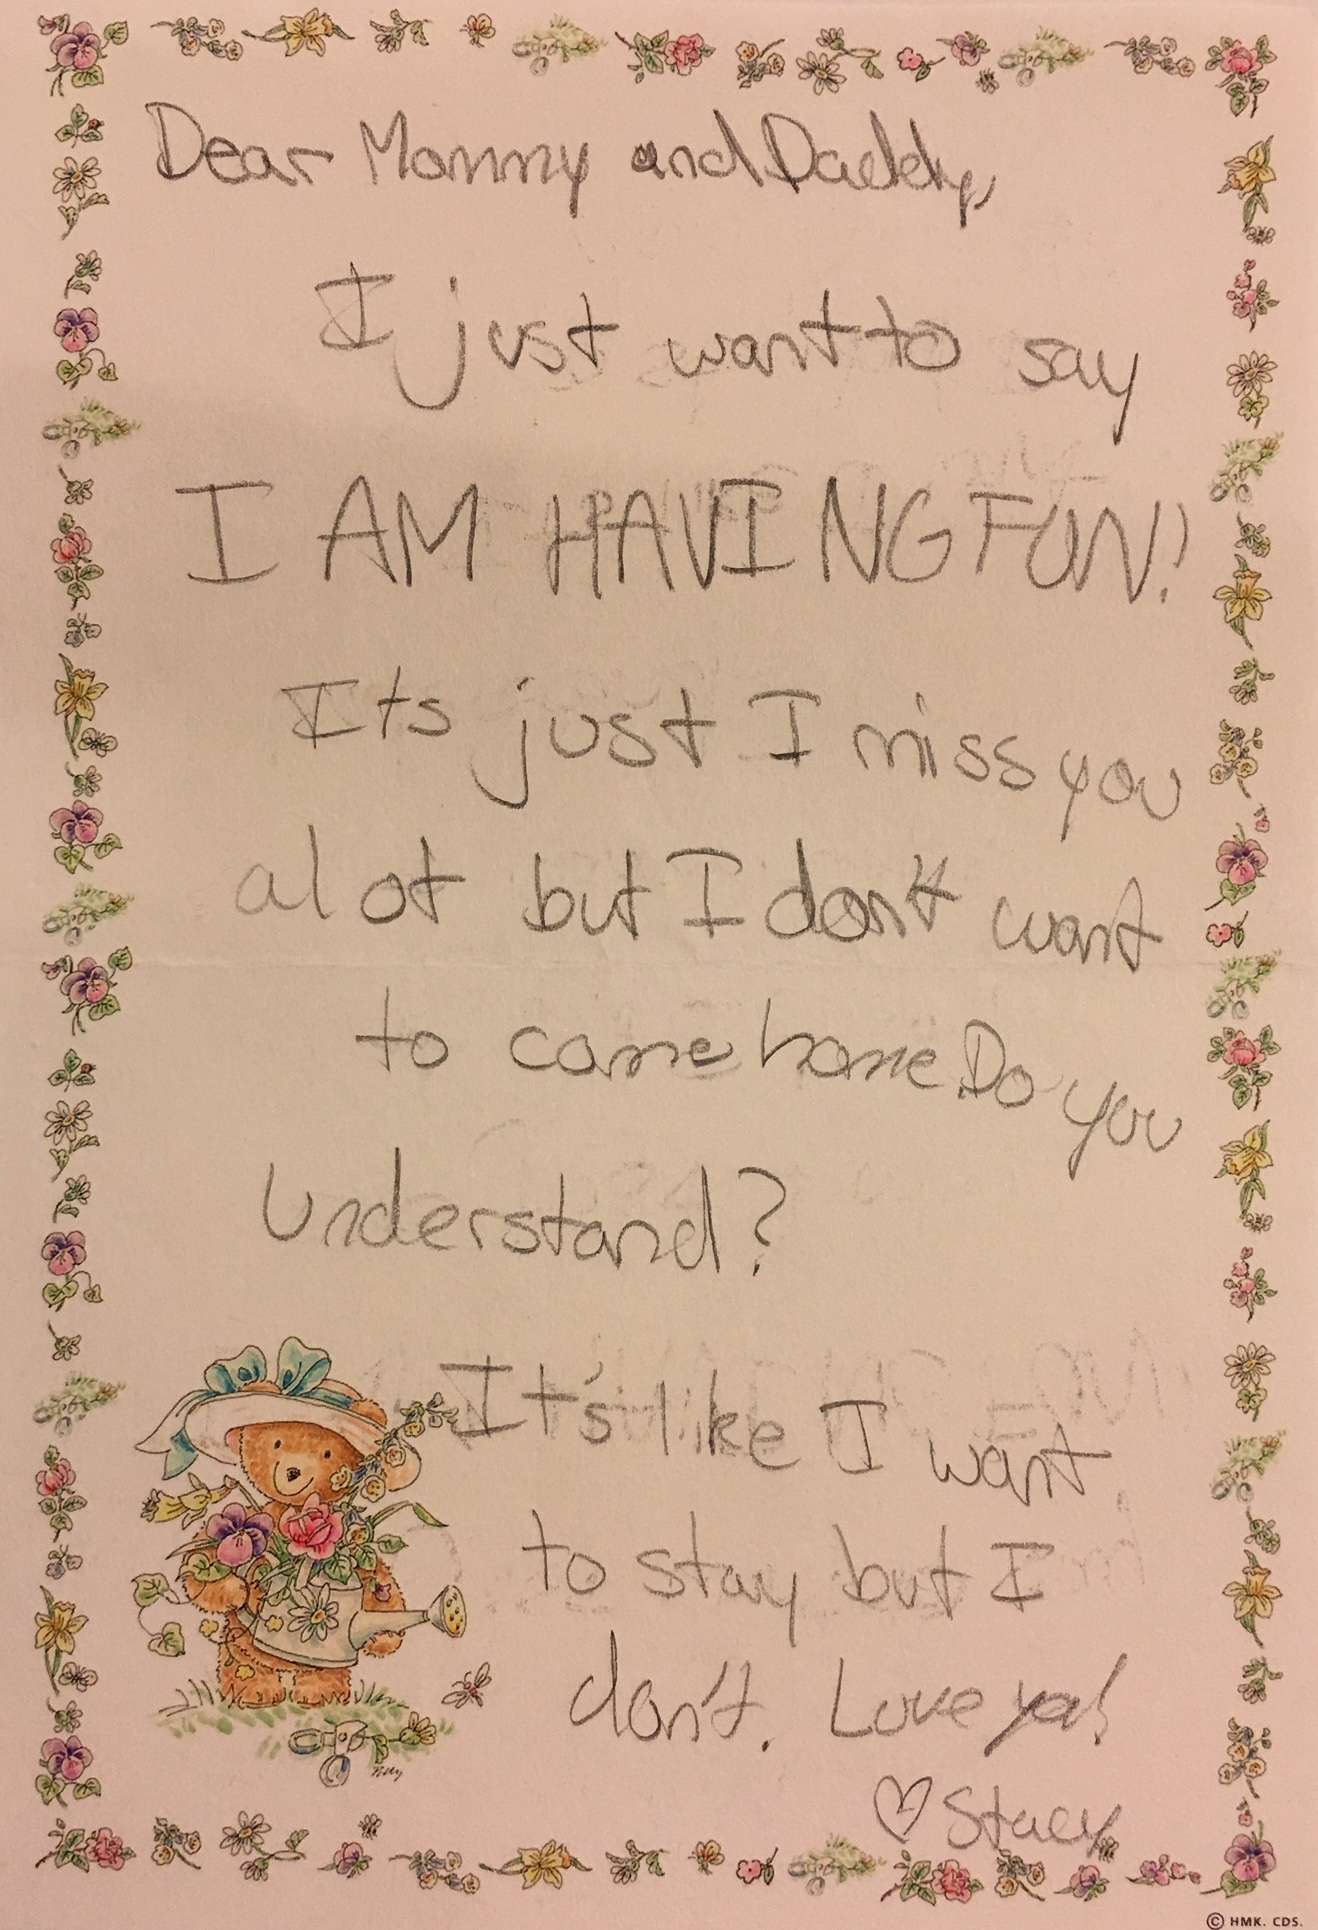 Dear Mommy and Daddy,
I just want to say
I AM HAVING FUN!
Its just I miss you
alot but I don't want
to come home. Do you
understand?
It's like I want
to stay but I
don't. Love ya!
♡ Stacy
© HMK. CDS.